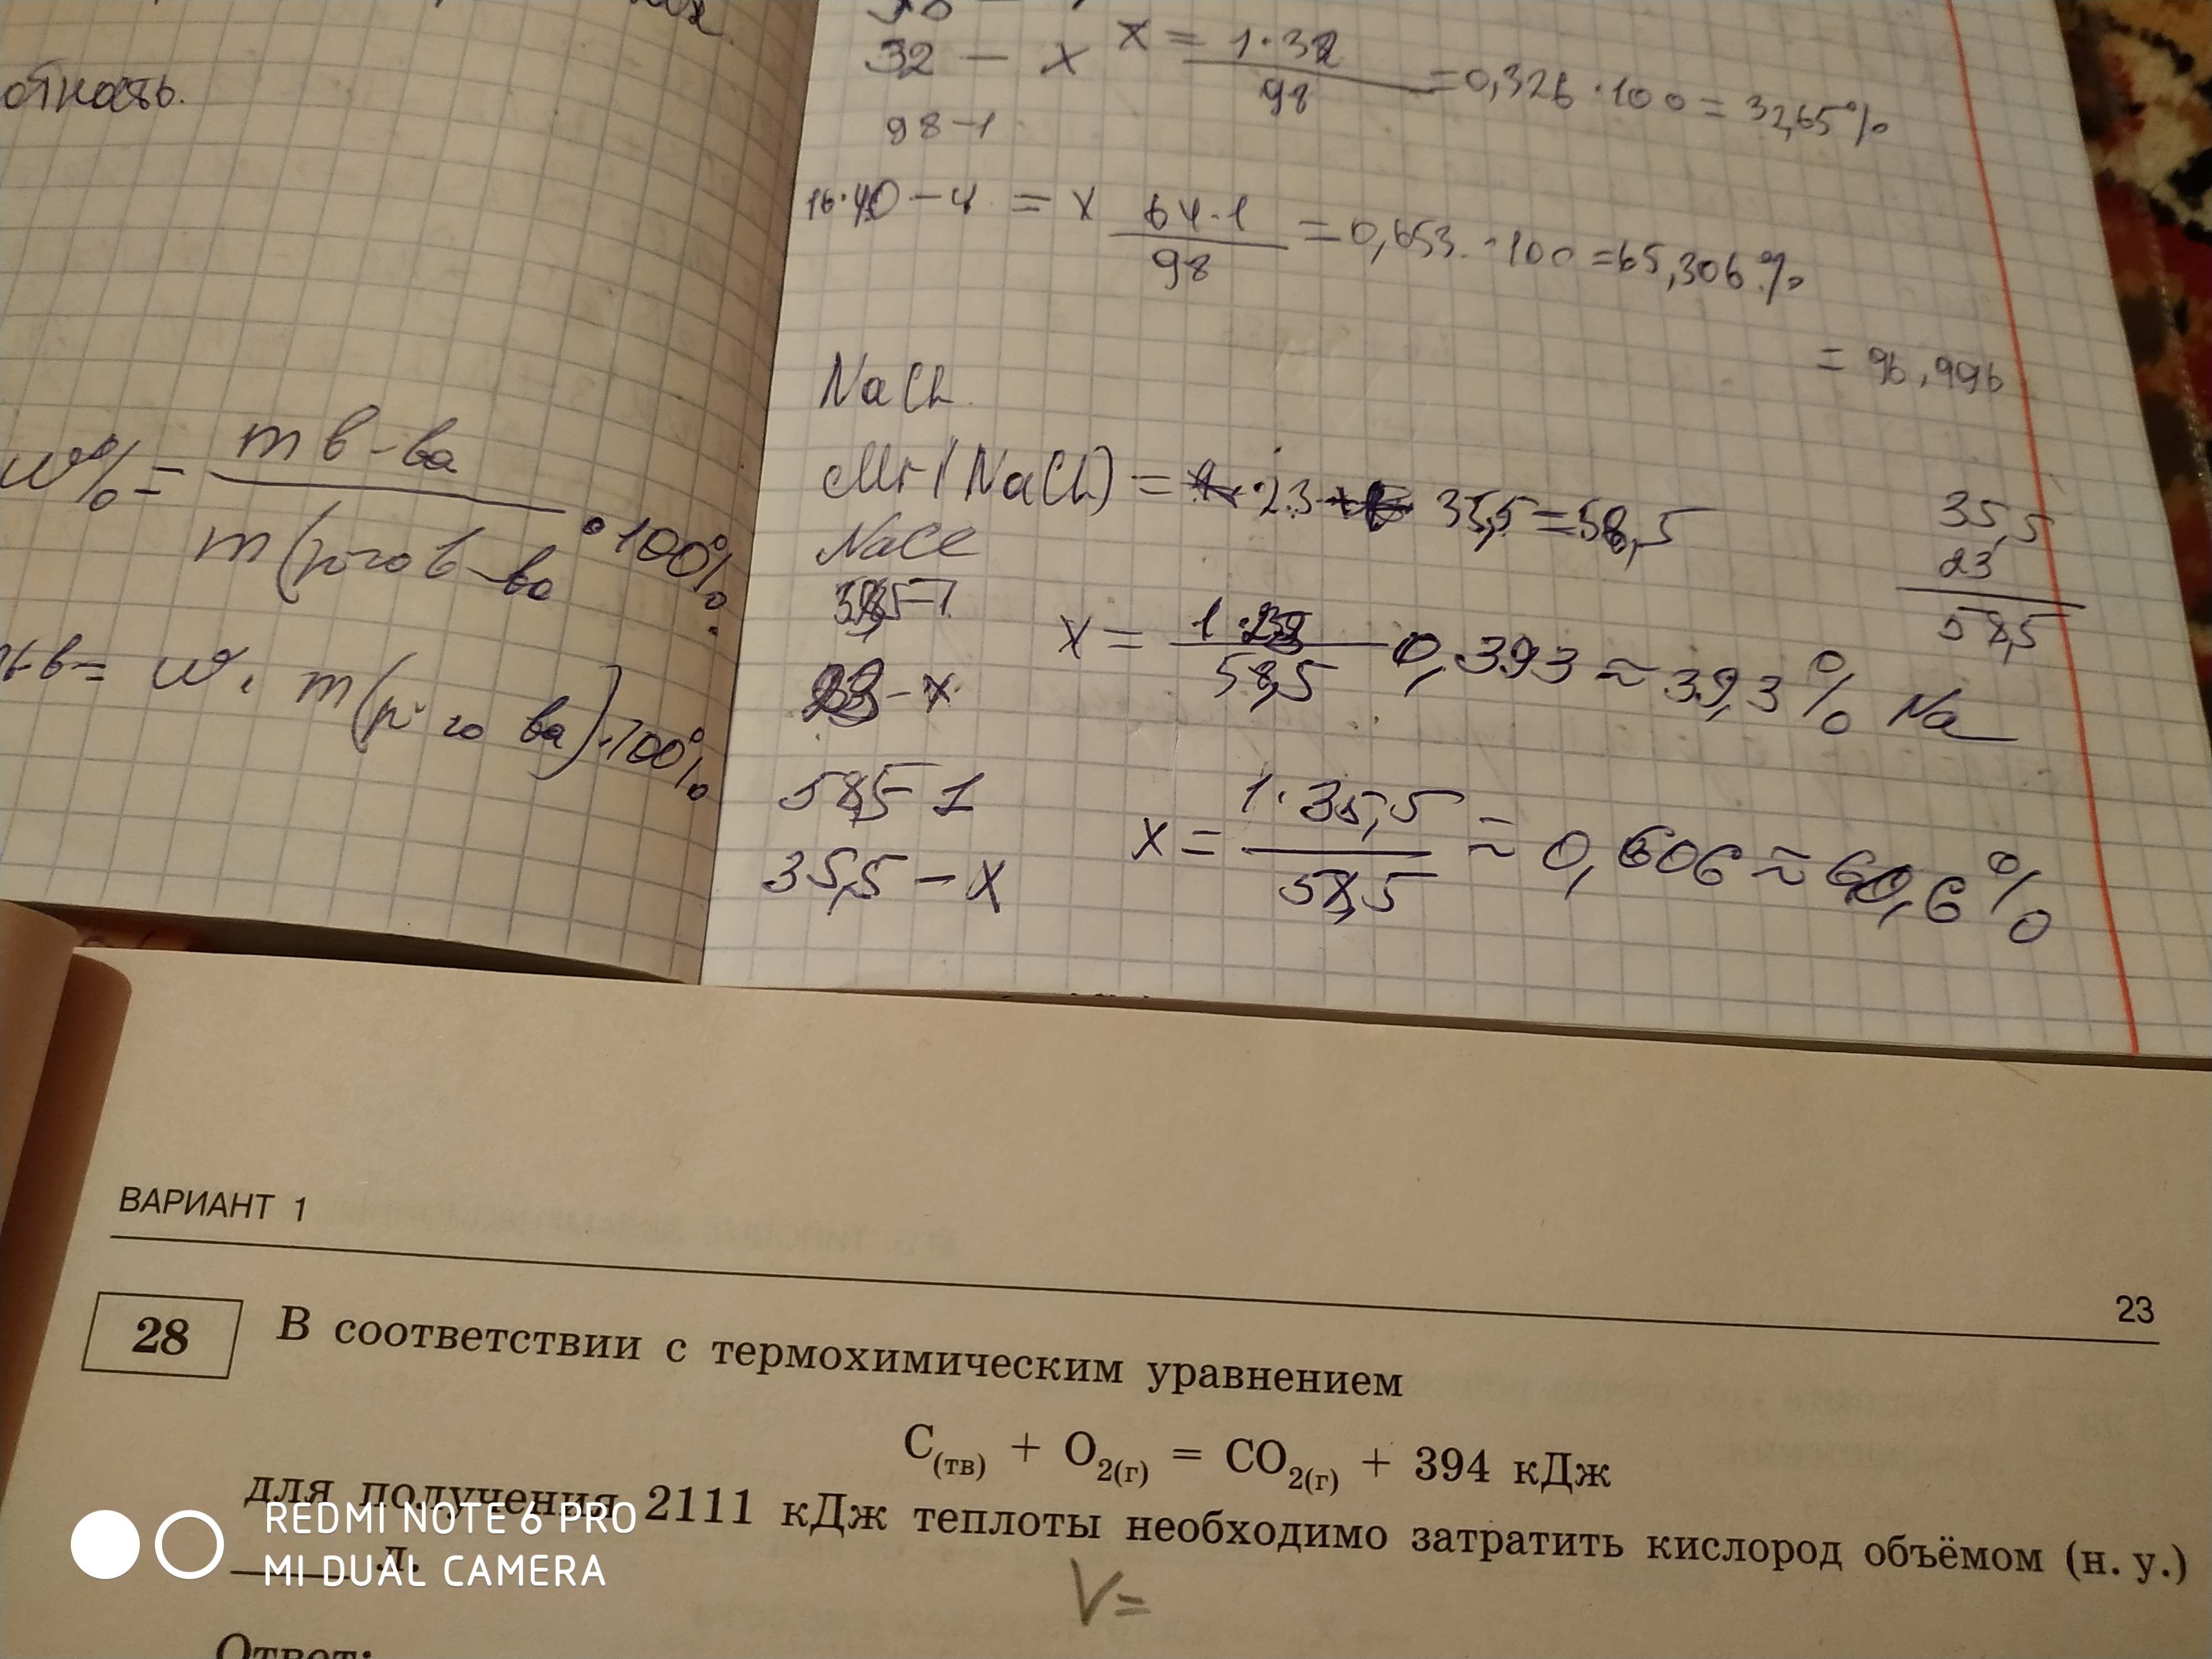 отность.
w% = m в-ва
m(р-го в-ва · 100%
= w · m(р-го ва) · 100%
32 - x x = 1·32
98 = 0,326 · 100 = 32,65%
98-1
16·40 - 4 = x 64·1
98 = 0,653 · 100 = 65,306%
= 96,996
NaCl
Mr(NaCl) = 23 35,5 = 58,5
NaCl
35,5
23
58,5
58,5-1
23 - x
x = 1·23
58,5 0,393 ≈ 39,3% Na
58,5 - 1
35,5 - x
x = 1·35,5
58,5 ≈ 0,606 ≈ 60,6%
ВАРИАНТ 1
23
28 В соответствии с термохимическим уравнением
C(тв) + O2(г) = CO2(г) + 394 кДж
для получения 2111 кДж теплоты необходимо затратить кислород объёмом (н. у.)
л.
V=
Ответ:
REDMI NOTE 6 PRO
MI DUAL CAMERA